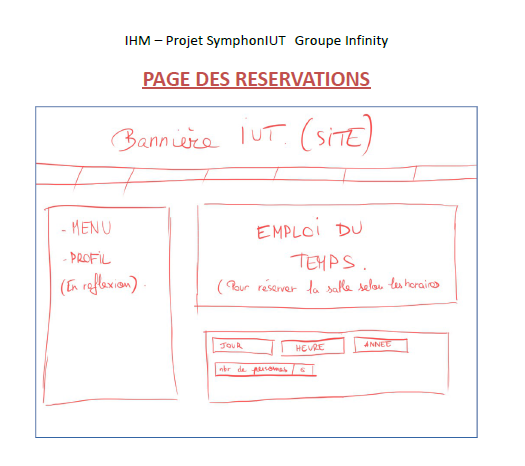 IHM – Projet SymphonIUT Groupe Infinity
PAGE DES RESERVATIONS
Bannière IUT. (SITE)
- MENU
- PROFIL
(En reflexion).
EMPLOI DU
TEMPS.
(Pour réserver la salle selon les horaires
JOUR
HEURE
ANNEE
nbr de personnes